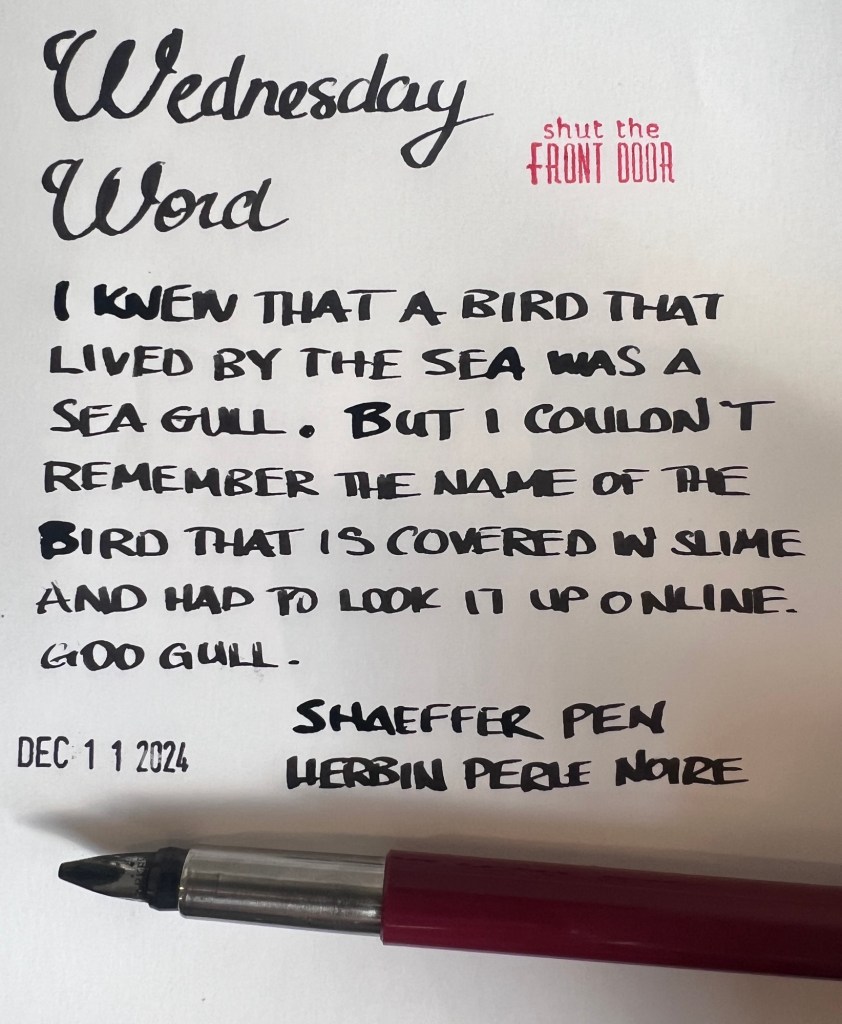 Wednesday
Word
shut the
FRONT DOOR
I KNEW THAT A BIRD THAT
LIVED BY THE SEA WAS A
SEA GULL. BUT I COULDN'T
REMEMBER THE NAME OF THE
BIRD THAT IS COVERED IN SLIME
AND HAD TO LOOK IT UP ONLINE.
GOO GULL.
SHAEFFER PEN
HERBIN PERLE NOIRE
DEC 11 2024